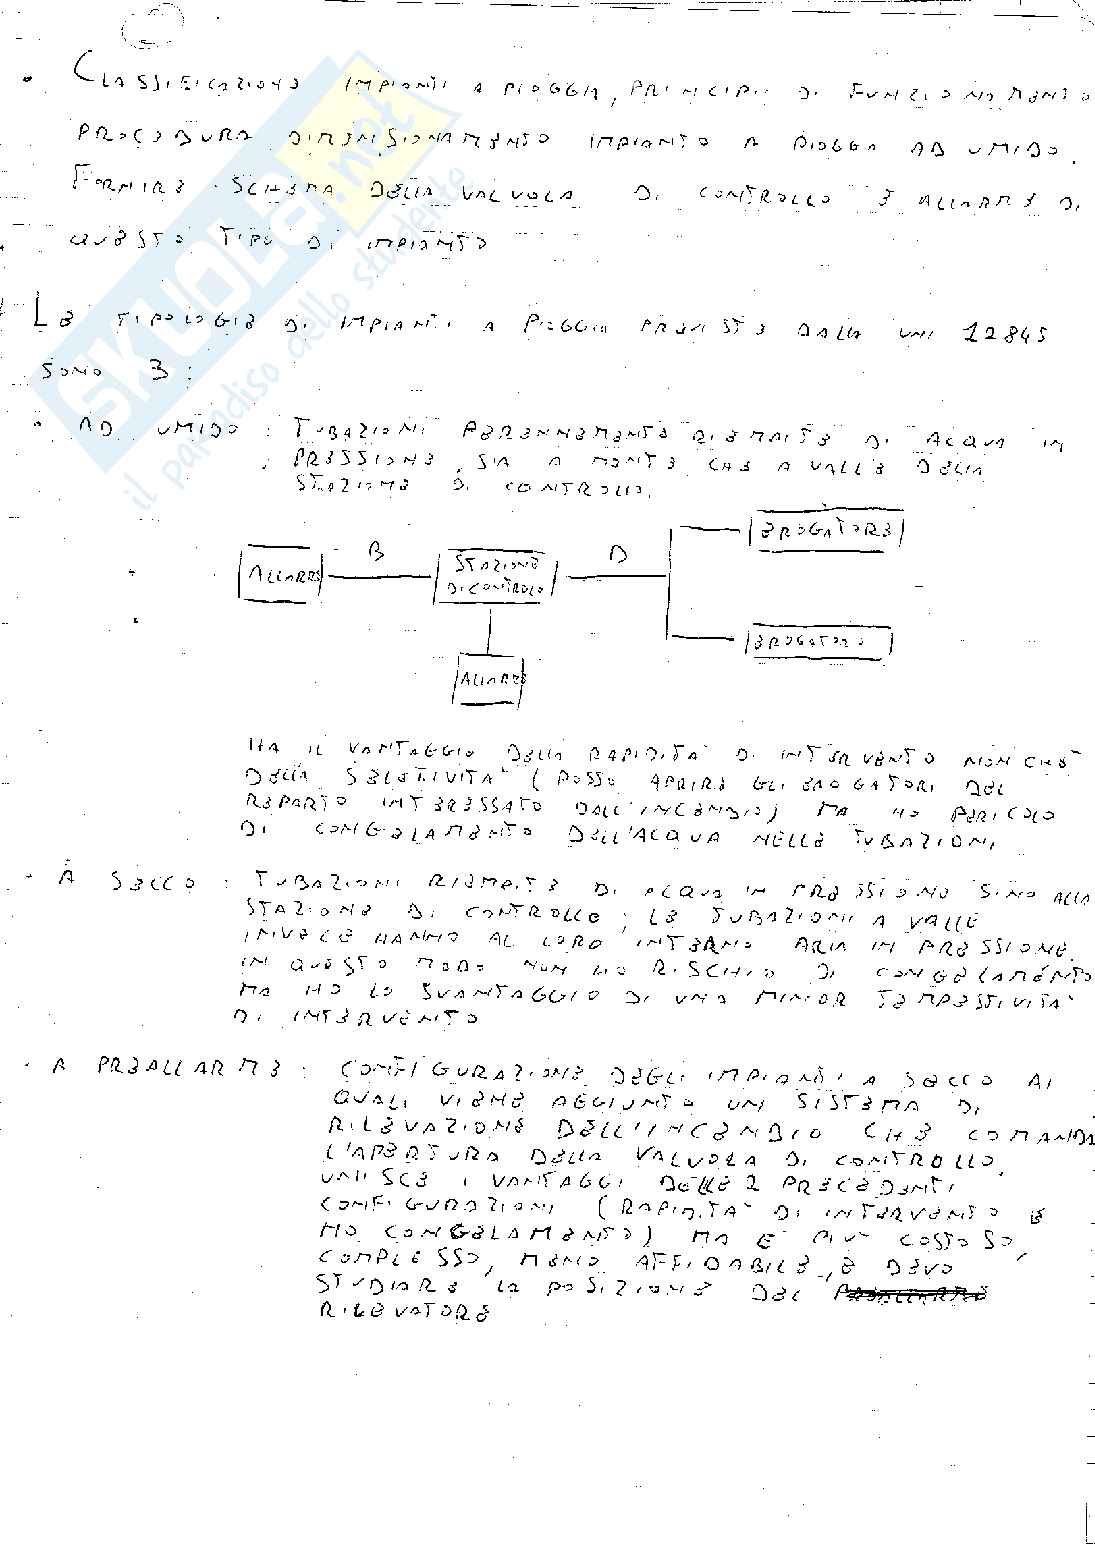 • CLASSIFICAZIONE IMPIANTI A PIOGGIA, PRINCIPII DI FUNZIONAMENTO
PROCEDURA DIMENSIONAMENTO IMPIANTO A PIOGGIA AD UMIDO.
FORNIRE SCHEMA DELLA VALVOLA DI CONTROLLO E ALLARME DI
QUESTO TIPO DI IMPIANTO
LE TIPOLOGIE DI IMPIANTI A PIOGGIA PREVISTE DALLA UNI 12845
SONO 3:
• AD UMIDO : TUBAZIONI PERENNEMENTE RIEMPITE DI ACQUA IN
PRESSIONE, SIA A MONTE CHE A VALLE DELLA
STAZIONE DI CONTROLLO.
EROGATORE
B
D
ALLARME
STAZIONE
DI CONTROLO
EROGATORE
ALLARME
HA IL VANTAGGIO DELLA RAPIDITA' DI INTERVENTO NONCHE'
DELLA SELETTIVITA' (POSSO APRIRE GLI EROGATORI DEL
REPARTO INTERESSATO DALL'INCENDIO) MA HO PERICOLO
DI CONGELAMENTO DELL'ACQUA NELLE TUBAZIONI
• A SECCO : TUBAZIONI RIEMPITE DI ACQUA IN PRESSIONE SINO ALLA
STAZIONE DI CONTROLLO; LE TUBAZIONI A VALLE
INVECE HANNO AL LORO INTERNO ARIA IN PRESSIONE.
IN QUESTO MODO NON HO RISCHIO DI CONGELAMENTO
MA HO LO SVANTAGGIO DI UNA MINOR TEMPESTIVITA'
DI INTERVENTO
• A PREALLARME : CONFIGURAZIONE DEGLI IMPIANTI A SECCO AI
QUALI VIENE AGGIUNTO UN SISTEMA DI
RILEVAZIONE DELL'INCENDIO CHE COMANDA
L'APERTURA DELLA VALVOLA DI CONTROLLO.
UNISCE I VANTAGGI DELLE 2 PRECEDENTI
CONFIGURAZIONI (RAPIDITA' DI INTERVENTO E
NO CONGELAMENTO) MA E' PIU' COSTOSO,
COMPLESSO, MENO AFFIDABILE, E DEVO
STUDIARE LA POSIZIONE DEL PREALLARME
RILEVATORE
SKUOLA.net
il paradiso dello studente